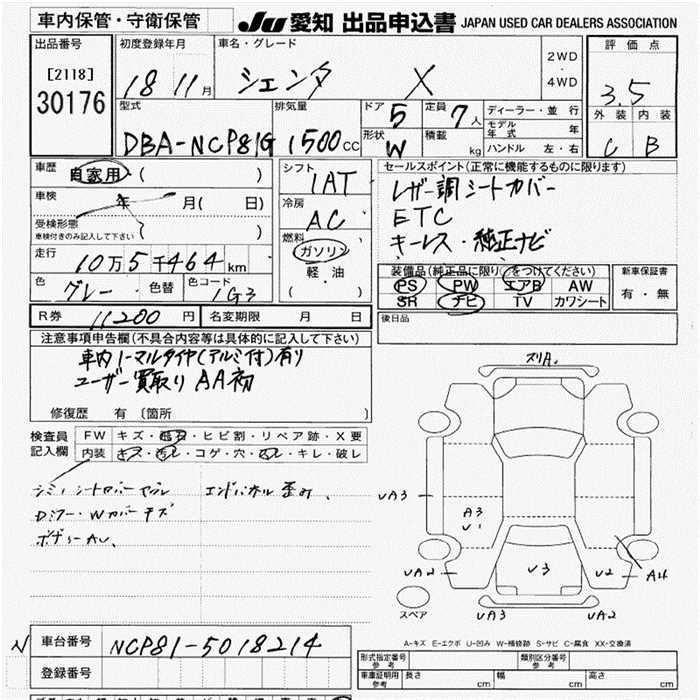 車内保管・守衛保管 JU 愛知 出品申込書 JAPAN USED CAR DEALERS ASSOCIATION
出品番号 初度登録年月 車名・グレード 2WD・4WD 評価点
[2118] 18 11月 シエンタ X 3.5
30176 型式 排気量 ドア 5 定員 7人 ディーラー・並行 外装 内装
DBA-NCP81G 1500cc 形状 W 積載 kg モデル年式 年 C B
ハンドル 左・右
車歴 自家用 ( ) シフト 1AT セールスポイント(正常に機能するものに限ります)
車検 年 月( 日) 冷房 AC レザー調シートカバー
受検形態 ( ) ETC
車検付きのみ記入して下さい 燃料 キーレス・純正ナビ
走行 10万5千464km ガソリン
軽油 装備品(純正品に限り○をつけてください) 新車保証書
色 グレー 色替 色コード 1G3 ( ) PS PW エアB AW 有・無
SR ナビ TV カワシート
R券 11200円 名変期限 月 日 後日品
注意事項申告欄(不具合内容等は具体的に記入して下さい)
車内ノーマルタイヤ(アルミ付)有り
ユーザー買取り AA初
修復歴 有 〔箇所 〕
検査員記入欄 FW キズ・飛石・ヒビ割・リペア跡・X要
内装 キズ・汚レ・コゲ・穴・スレ・キレ・破レ
エンドパネル歪み、
Dミラー・Wカバーキズ
スリA
UA3
A3
U1
UA2 U3 U2 A4
スペア UA3 UA2
A-キズ E-エクボ U-凹み W-補修跡 S-サビ C-腐食 XX-交換済
N 車台番号 NCP81-5018214
登録番号
形式指定番号 参考 類別区分番号 参考
車庫証明用 参考 長さ cm 幅 cm 高さ cm